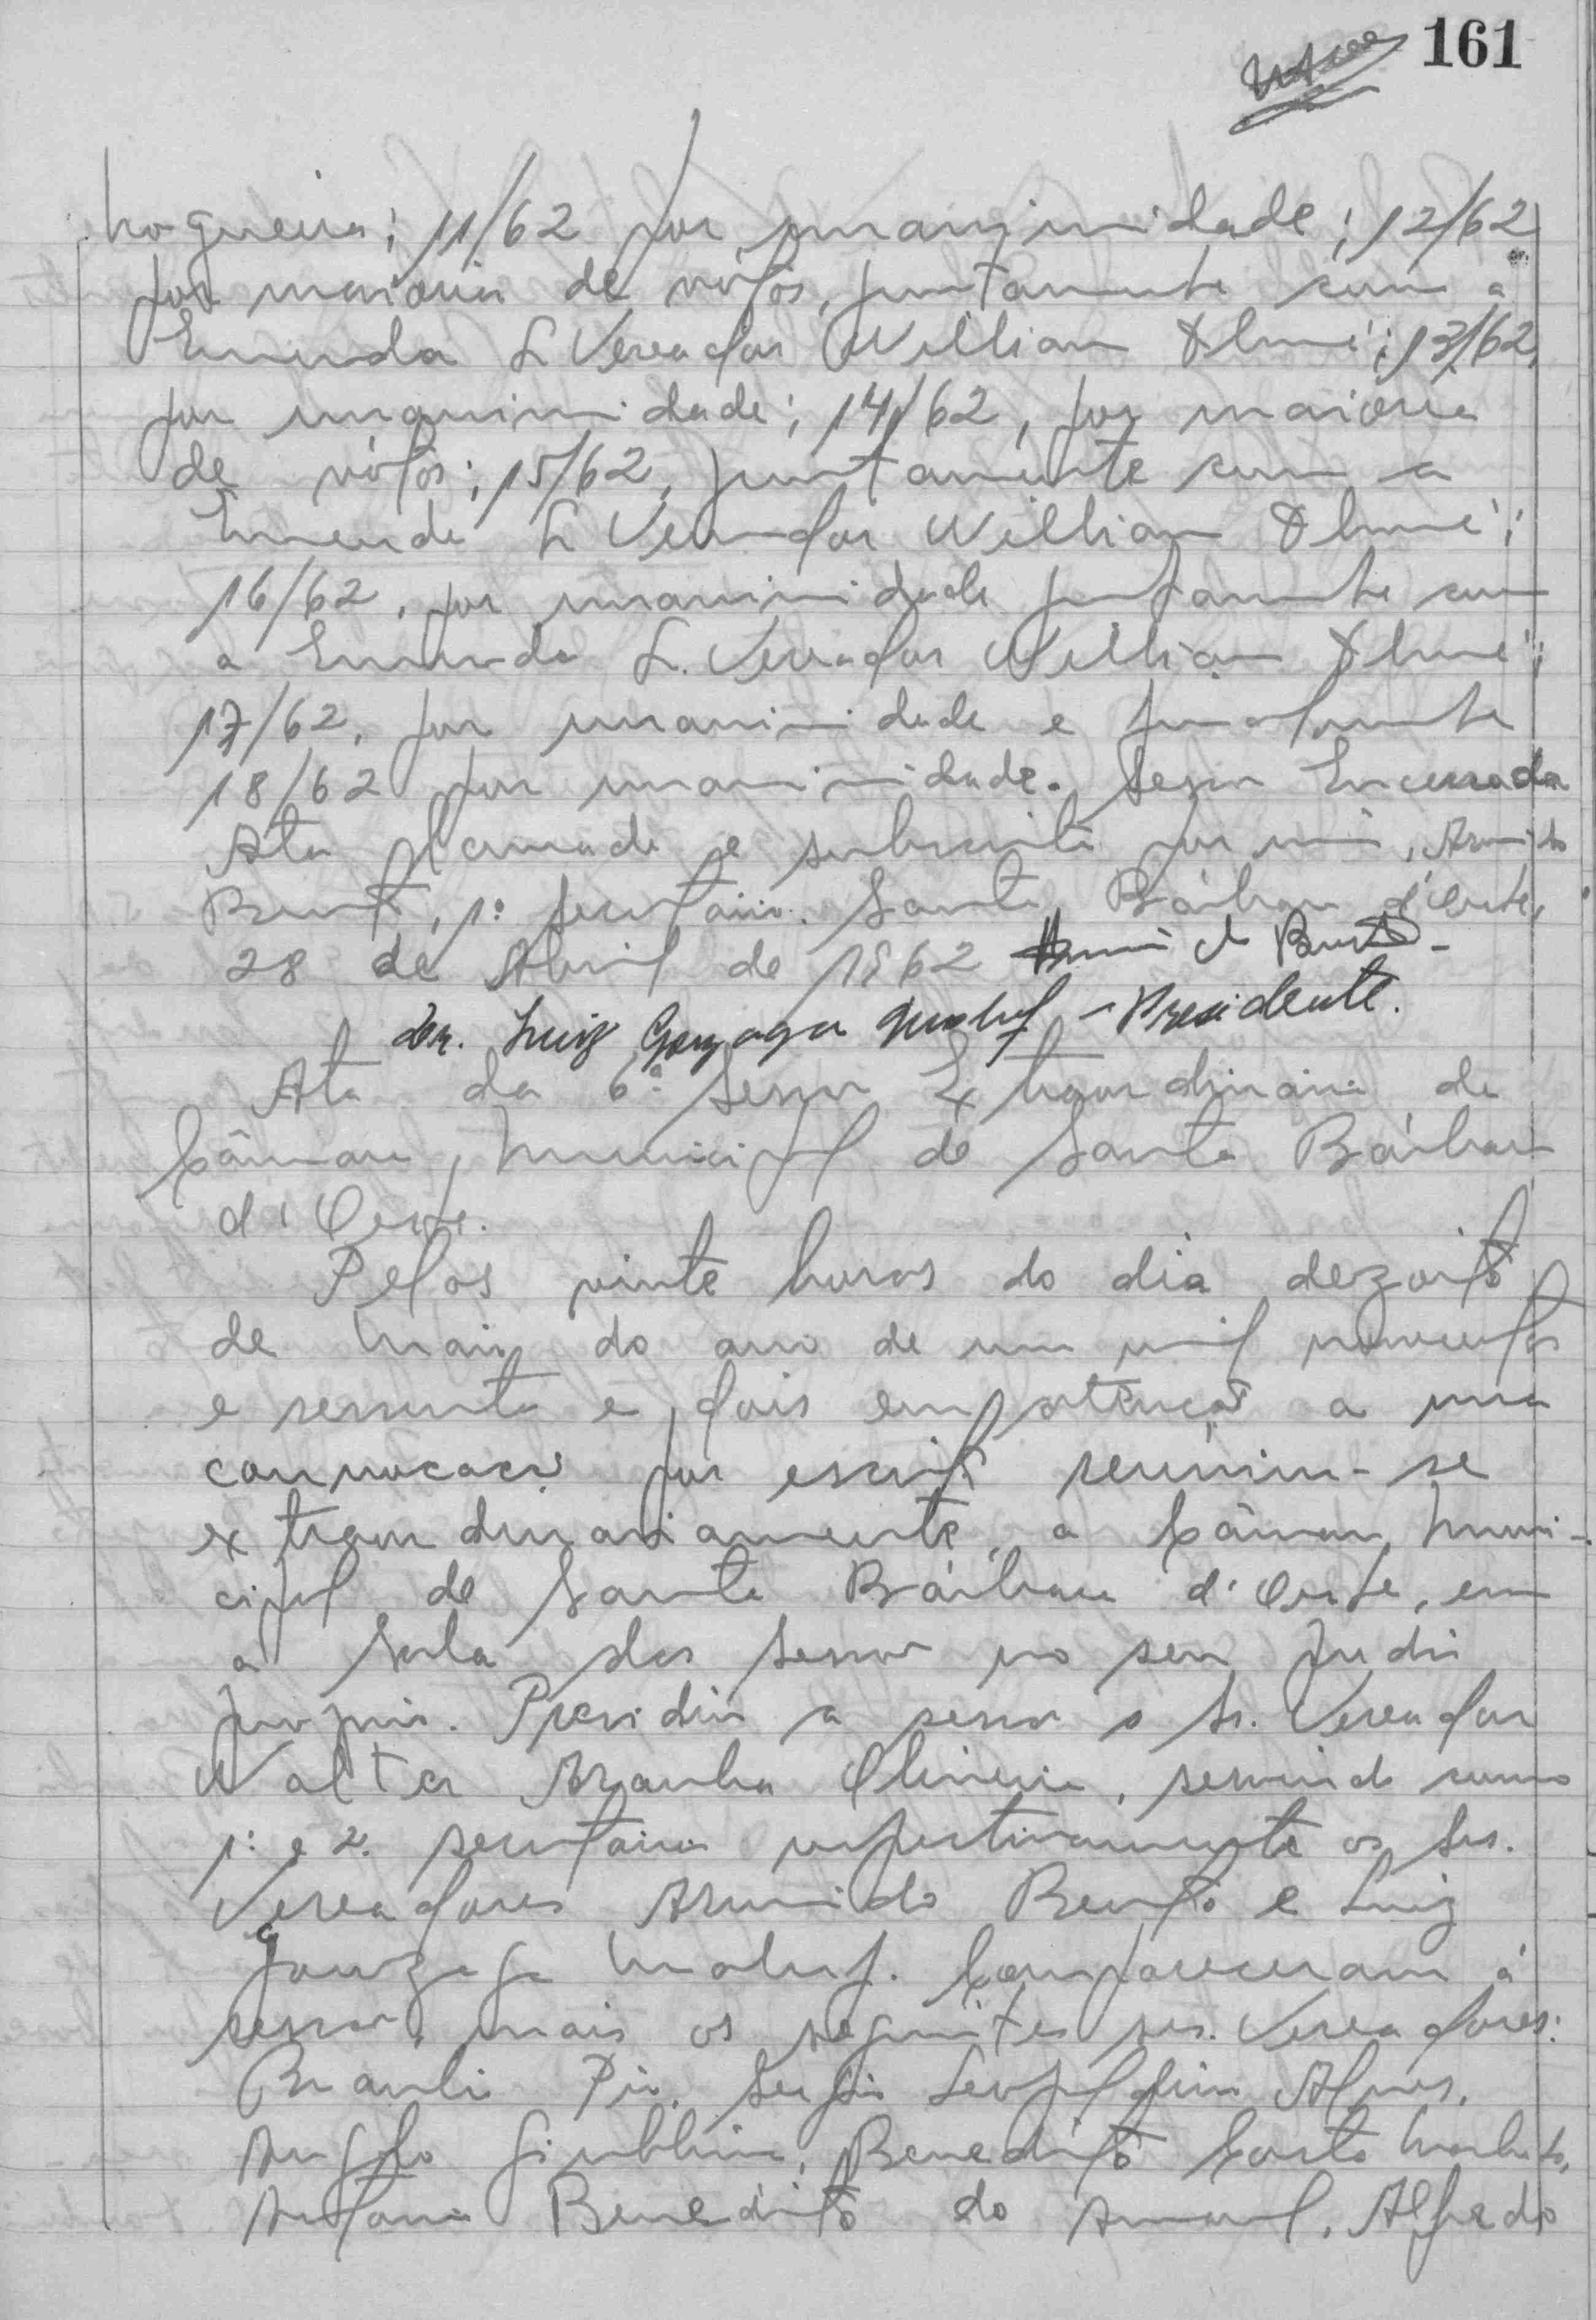 161
Nogueira; 11/62 por unanimidade; 12/62
por maioria de vótos, juntamente com a
Emenda d. Vereador William
; 13/62,
por unanimidade; 14/62, por maioria
de vótos; 15/62, juntamente com a
Emenda d. Vereador William
16/62, por unanimidade juntamente com
a Emenda d. Vereador William
17/62, por unanimidade e finalmente
18/62 por unanimidade. Sessão Encerrada
Ata e subscrita por mim, Armindo
Bento, 1º secretário. Santa Bárbara d'Oeste,
28 de Abril de 1962 Armindo Bento-
Dr. Luiz Gonzaga Maluf - Presidente.
Ata da 6ª Sessão Extraordinária da
Câmara Municipal de Santa Bárbara
d'Oeste.
Pelas vinte horas do dia dezoito
de Maio do ano de um mil novecentos
e sessenta e dois em atenção a uma
convocação por escrito reuniu-se
extraordinariamente, a Câmara Muni-
cipal de Santa Bárbara d'Oeste, em
a Sala das Sessões no seu Prédio
Próprio. Presidiu a sessão o Sr. Vereador
Walter Aranha Oliveira, servindo como
1º e 2º secretários respectivamente os Srs.
Vereadores Armindo Bento e Luiz
Gonzaga Maluf. Compareceram á
sessão, mais os seguintes srs. Vereadores:
Braulio Pio, Sergio Leopoldino Alves,
Angelo Giubbina, Benedito Costa Machado,
Antonio Benedito do Amaral, Alfredo